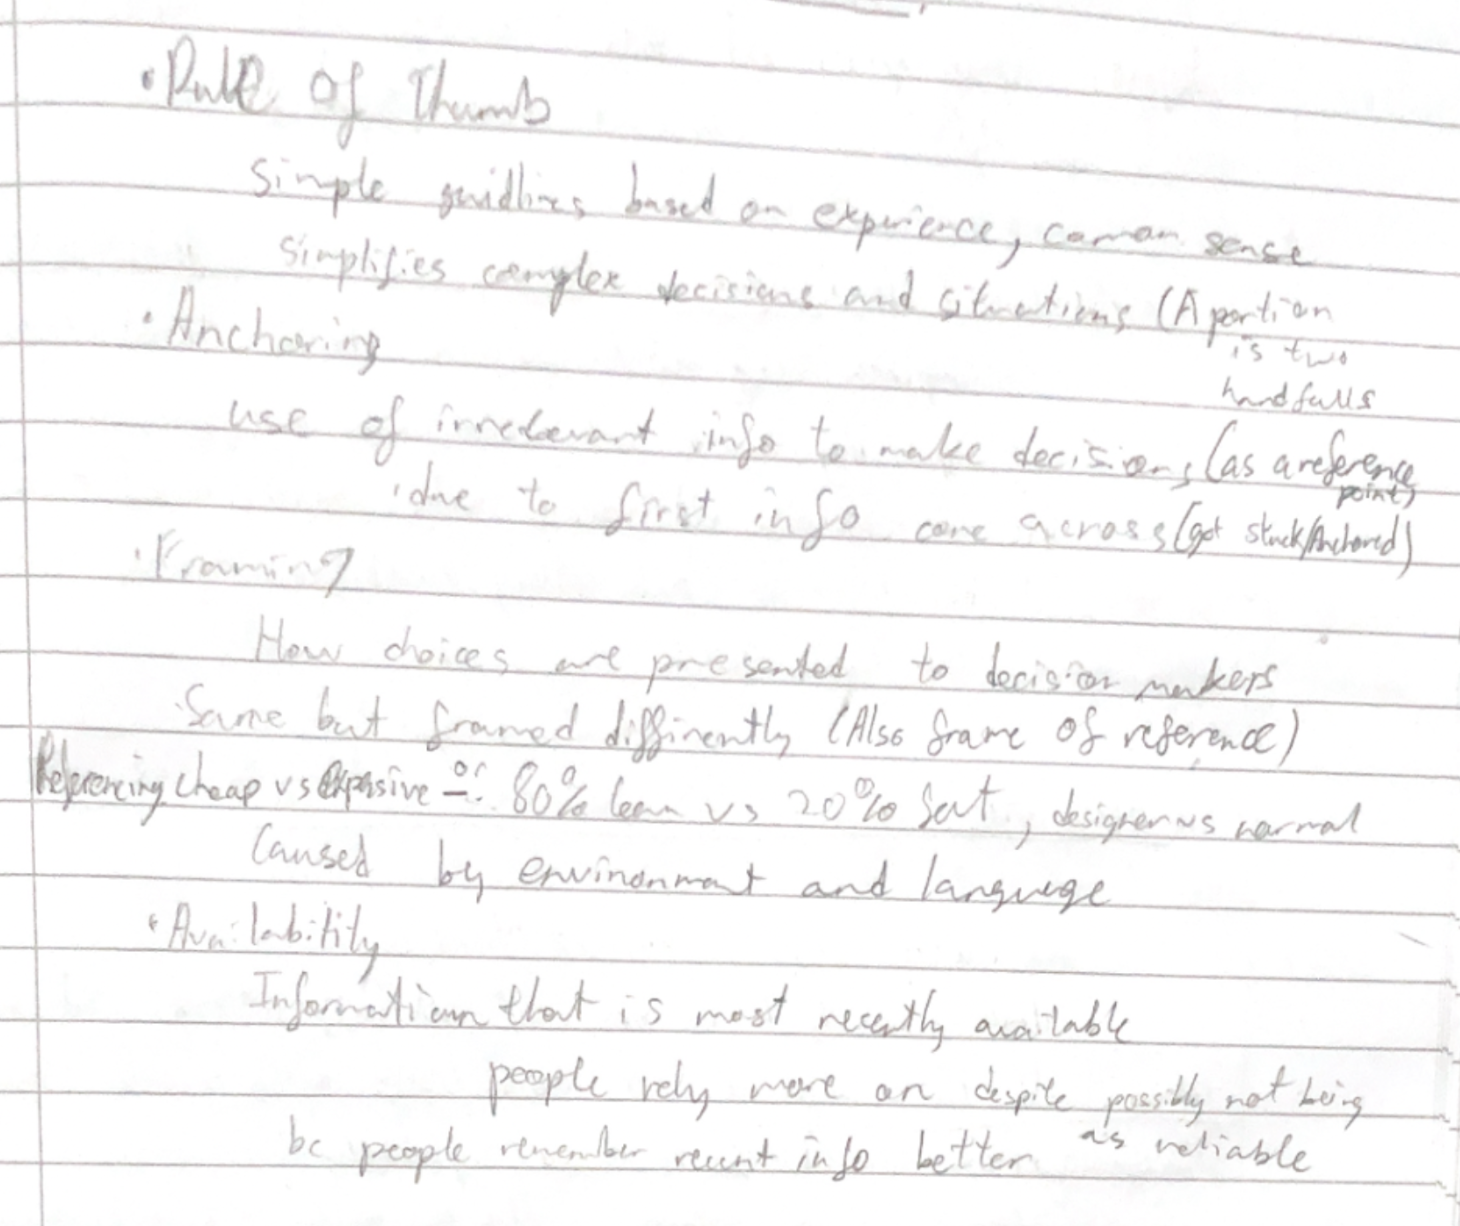 • Rule of Thumb
Simple guidlines based on experience, common sense
Simplifies complex decisions and situations (A portion
is two
handfulls
• Anchoring
use of irrelevant info to make decisions (as a reference
point)
• due to first info come across (got stuck/Anchored)
• Framing
How choices are presented to decision makers
Same but framed diffirently (Also frame of reference)
Referencing cheap vs Expensive or 80% lean vs 20% fat, designer vs normal
Caused by environment and language
• Availability
Information that is most recently available
people rely more on despite possibly not being
as reliable
bc people remember recent info better